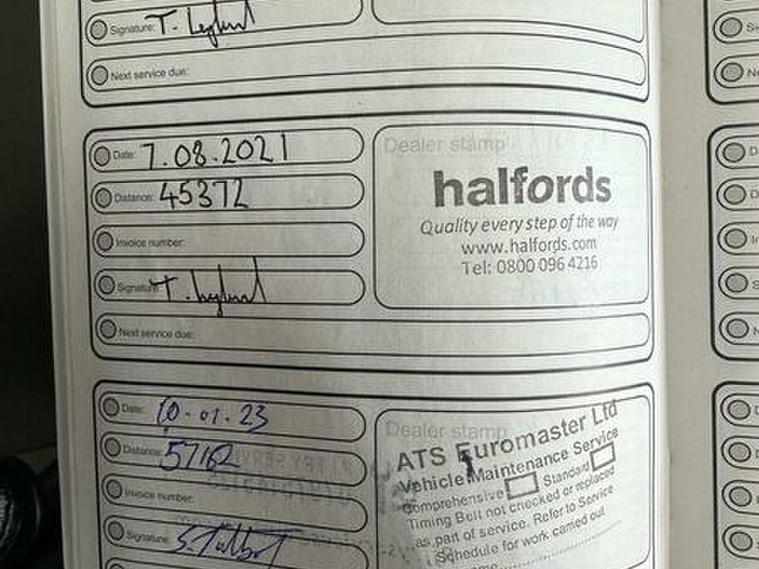 Signature: T. Leyland
Next service due:
Date: 7.08.2021
Distance: 45372
Invoice number:
Signature: T. Leyland
Next service due:
Dealer stamp
halfords
Quality every step of the way
www.halfords.com
Tel: 0800 096 4216
Date: 10-01-23
Distance: 57162
Invoice number:
Signature: S. Talbot
Dealer stamp
ATS Euromaster Ltd
Vehicle Maintenance Service
Comprehensive Standard
Timing Belt not checked or replaced
as part of service. Refer to Service
Schedule for work carried out